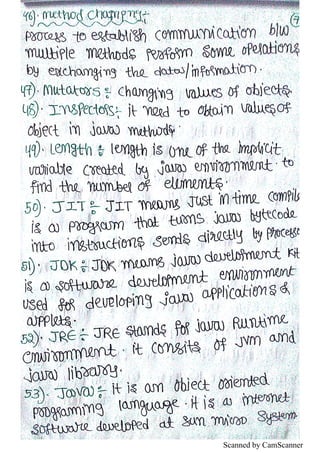 46). method chaining:-
Process to establish communication b/w
multiple methods perform some operations
by exchanging the data/information.
47). Mutators:- changing values of objects.
48). Inspectors:- it need to obtain values of
object in java methods.
49). Length:- length is one of the implicit
variable created by java environment to
find the number of elements.
50). JIT:- JIT means Just in time compile
is a program that turns java bytecode
into instructions sends directly by processe
51). JDK:- JDK means java development kit
is a software development environment
used for developing java applications &
applets.
52). JRE:- JRE stands for java Runtime
environment. it consits of jvm and
java library.
53). Java:- it is an object oriented
programming language. it is a internet
software developed at sun micro system
Scanned by CamScanner